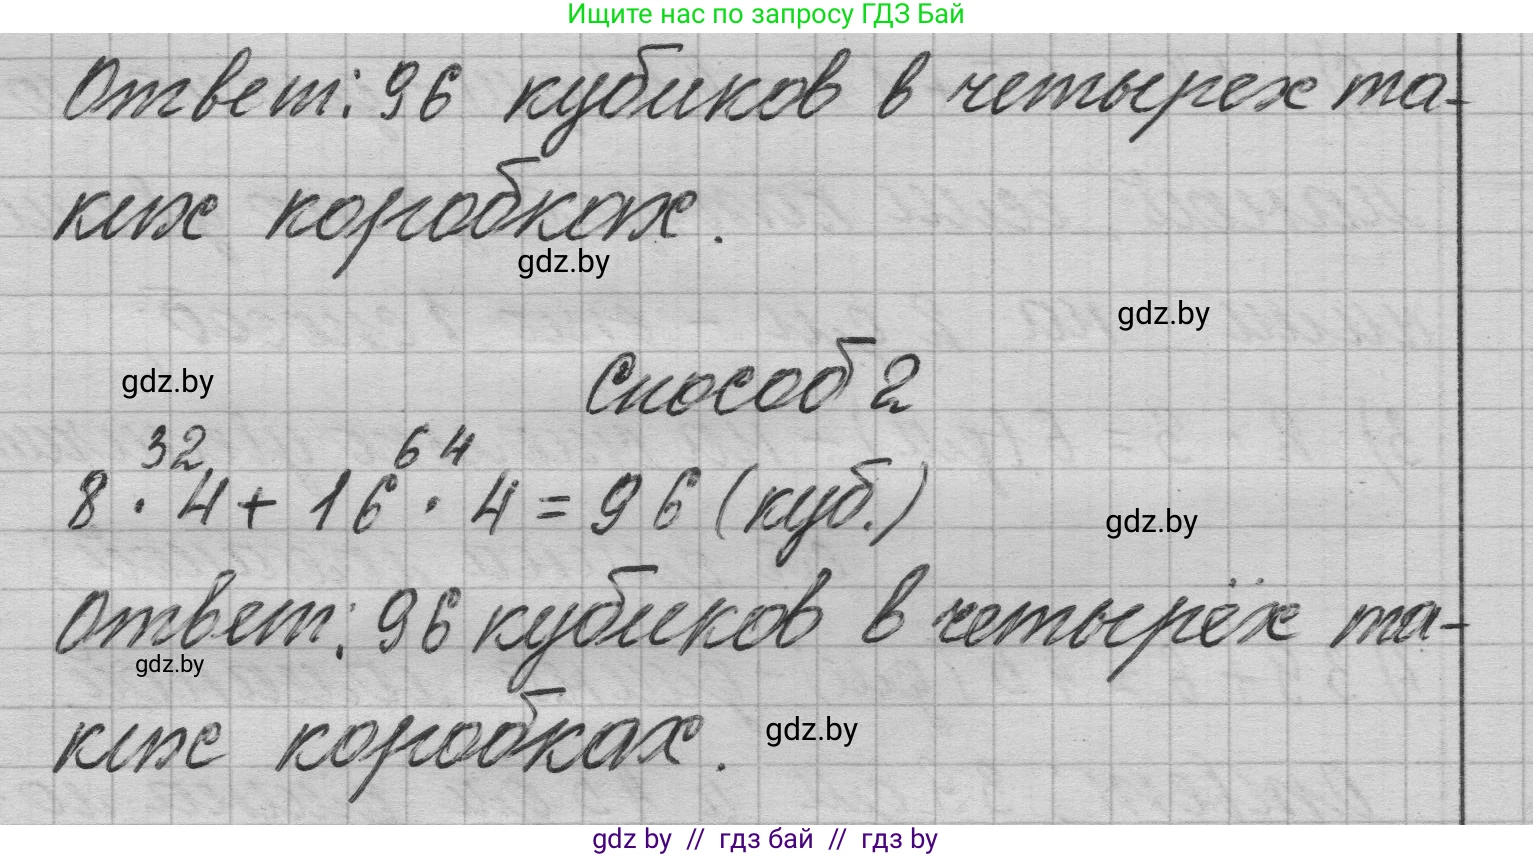 Ищите нас по запросу ГДЗ Бай
Ответ: 96 кубиков в четырех та-
ких коробках.
gdz.by
gdz.by
Способ 2
gdz.by
32 64
8 · 4 + 16 · 4 = 96 (куб.)
gdz.by
Ответ: 96 кубиков в четырёх та-
gdz.by
ких коробках.
gdz.by
gdz by // гдз бай // гдз by